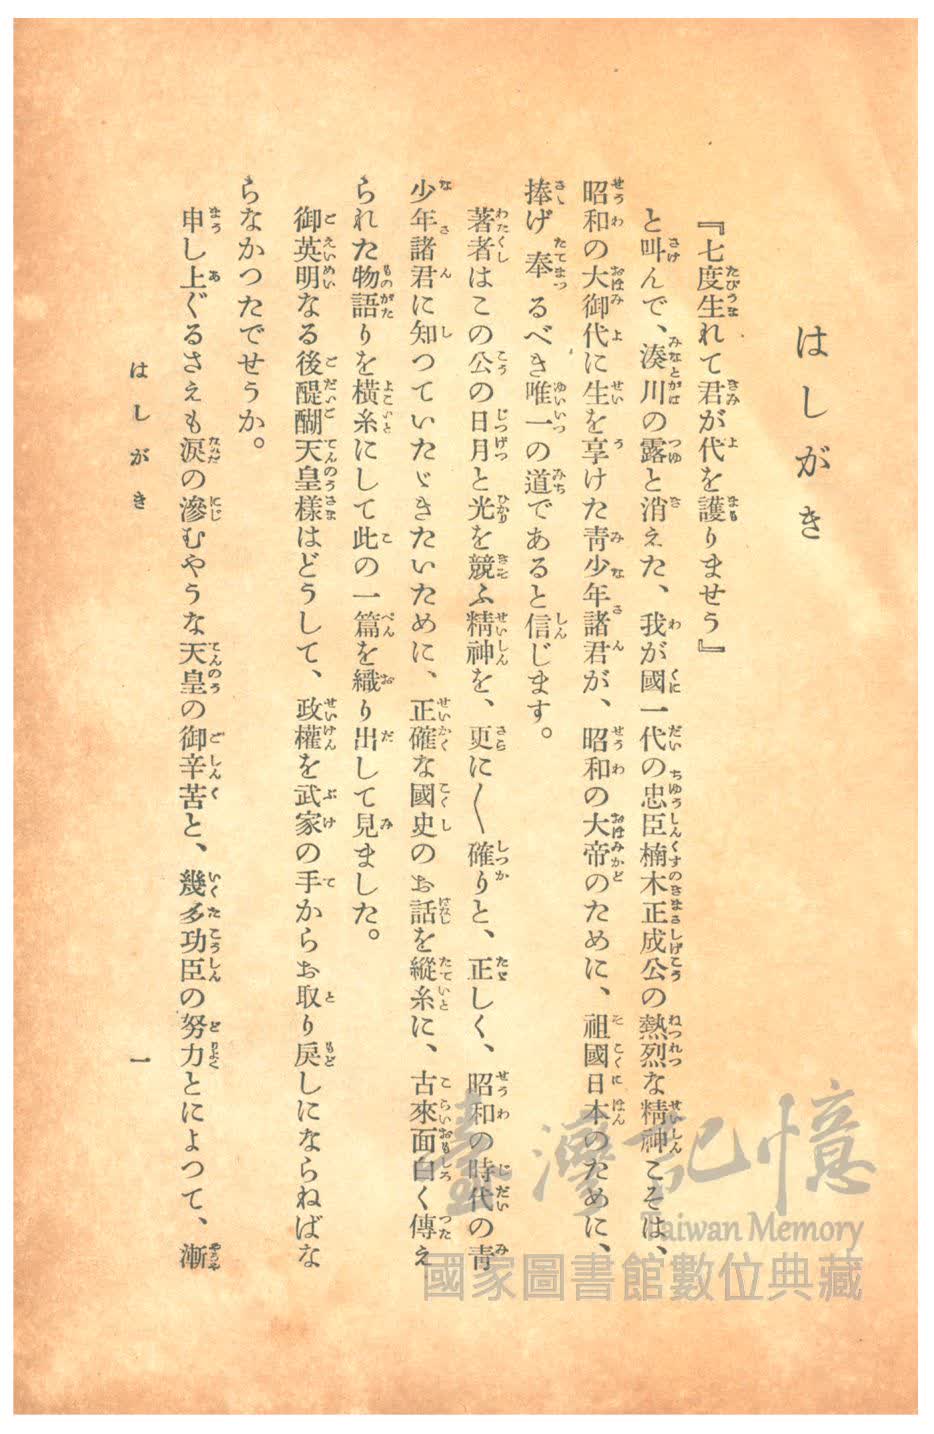 はしがき
『七度生れて君が代を護りませう』
と叫んで、湊川の露と消えた、我が國一代の忠臣楠木正成公の熱烈な精神こそは、
昭和の大御代に生を享けた靑少年諸君が、昭和の大帝のために、祖國日本のために、
捧げ奉るべき唯一の道であると信じます。
著者はこの公の日月と光を競ふ精神を、更に〱確りと、正しく、昭和の時代の靑
少年諸君に知つていたゞきたいために、正確な國史のお話を縱糸に、古來面白く傳え
られた物語りを橫糸にして此の一篇を織り出して見ました。
御英明なる後醍醐天皇樣はどうして、政權を武家の手からお取り戾しにならねばな
らなかつたでせうか。
申し上ぐるさえも淚の滲むやうな天皇の御辛苦と、幾多功臣の努力とによつて、漸
はしがき
一
臺灣記憶
Taiwan Memory
國家圖書館數位典藏